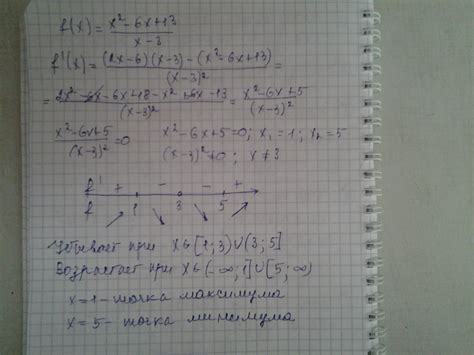 f(x) = (x² - 6x + 13)/(x - 3)
f'(x) = ((2x - 6)(x - 3) - (x² - 6x + 13))/(x - 3)² =
= (2x² - 6x - 6x + 18 - x² + 6x - 13)/(x - 3)² = (x² - 6x + 5)/(x - 3)²
(x² - 6x + 5)/(x - 3)² = 0 x² - 6x + 5 = 0; x₁ = 1; x₂ = 5
(x - 3)² ≠ 0; x ≠ 3
f' + - - +
f ↗ 1 ↘ 3 ↘ 5 ↗
Убывает при x∈[1; 3)∪(3; 5]
Возрастает при x∈(-∞; 1]∪[5; ∞)
x = 1 - точка максимума
x = 5 - точка минимума